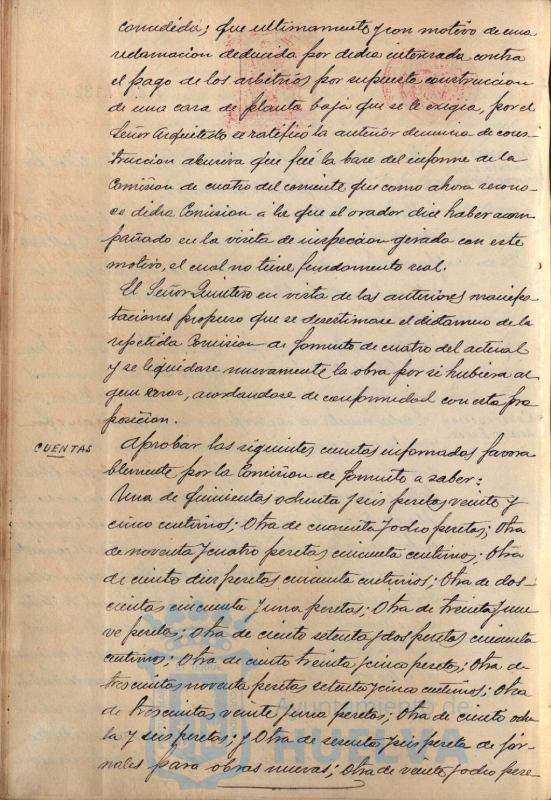 concedida; que ultimamente y con motivo de una
reclamacion deducida por dicha interesada contra
el pago de los arbitrios por supuesta construccion
de una casa de planta baja que se le exigia, por el
Señor Arquitecto se ratificó la anterior denuncia de cons-
truccion abusiva que fué la base del informe de la
Comision de cuatro del corriente que como ahora recono-
ce dicha Comision á la que el orador dice haber acom
pañado en la visita de inspeccion girada con este
motivo, el cual no tiene fundamento real.
El Señor Quintero en vista de las anteriores manifes-
taciones propuso que se desestimase el dictamen de la
repetida Comision de Fomento de cuatro del actual
y se liquidase nuevamente la obra por si hubiera al
gun error, acordandose de conformidad con esta pro
posicion.
CUENTAS
Aprobar las siguientes cuentas informadas favora
blemente por la Comision de Fomento a saber:
Una de quinientas ochenta y seis pesetas veinte y
cinco centimos; Otra de cuarenta y ocho pesetas; Otra
de noventa y cuatro pesetas cincuenta centimos; Otra
de ciento diez pesetas cincuenta centimos; Otra de dos-
cientas cincuenta y una pesetas; Otra de treinta y nue
ve pesetas; Otra de ciento setenta y dos pesetas cincuenta
centimos; Otra de ciento treinta y cinco pesetas; Otra de
trescientas noventa pesetas setenta y cinco centimos; Otra
de trescientas veinte y una pesetas; Otra de ciento oche
ta y seis pesetas; y Otra de sesenta y seis peseta de jor-
nales para obras nuevas; Otra de veinte y ocho pese
Ayuntamiento de
HUELVA